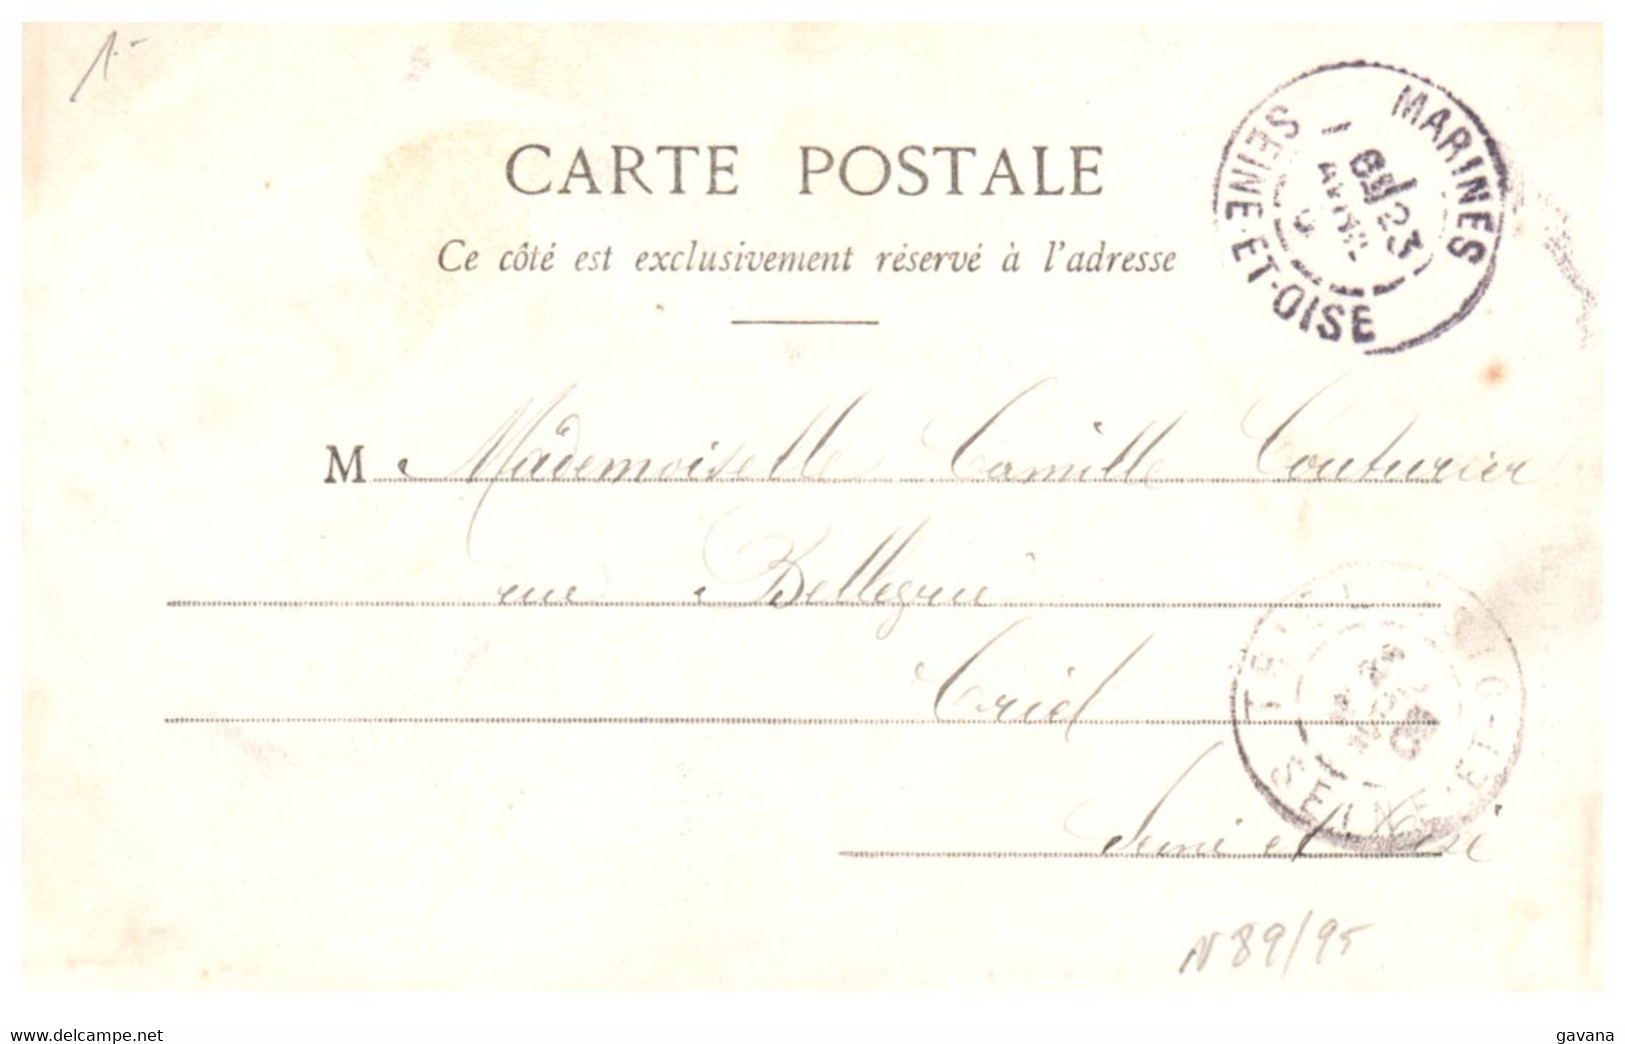 1.-
CARTE POSTALE
Ce côté est exclusivement réservé à l'adresse
MARINES
SEINE-ET-OISE
23
AVRIL
M Mademoiselle Camille Couturier
rue Bellegrue
Triel
Seine et Oise
SEINE-ET-O
N 89/95
www.delcampe.net
gavana